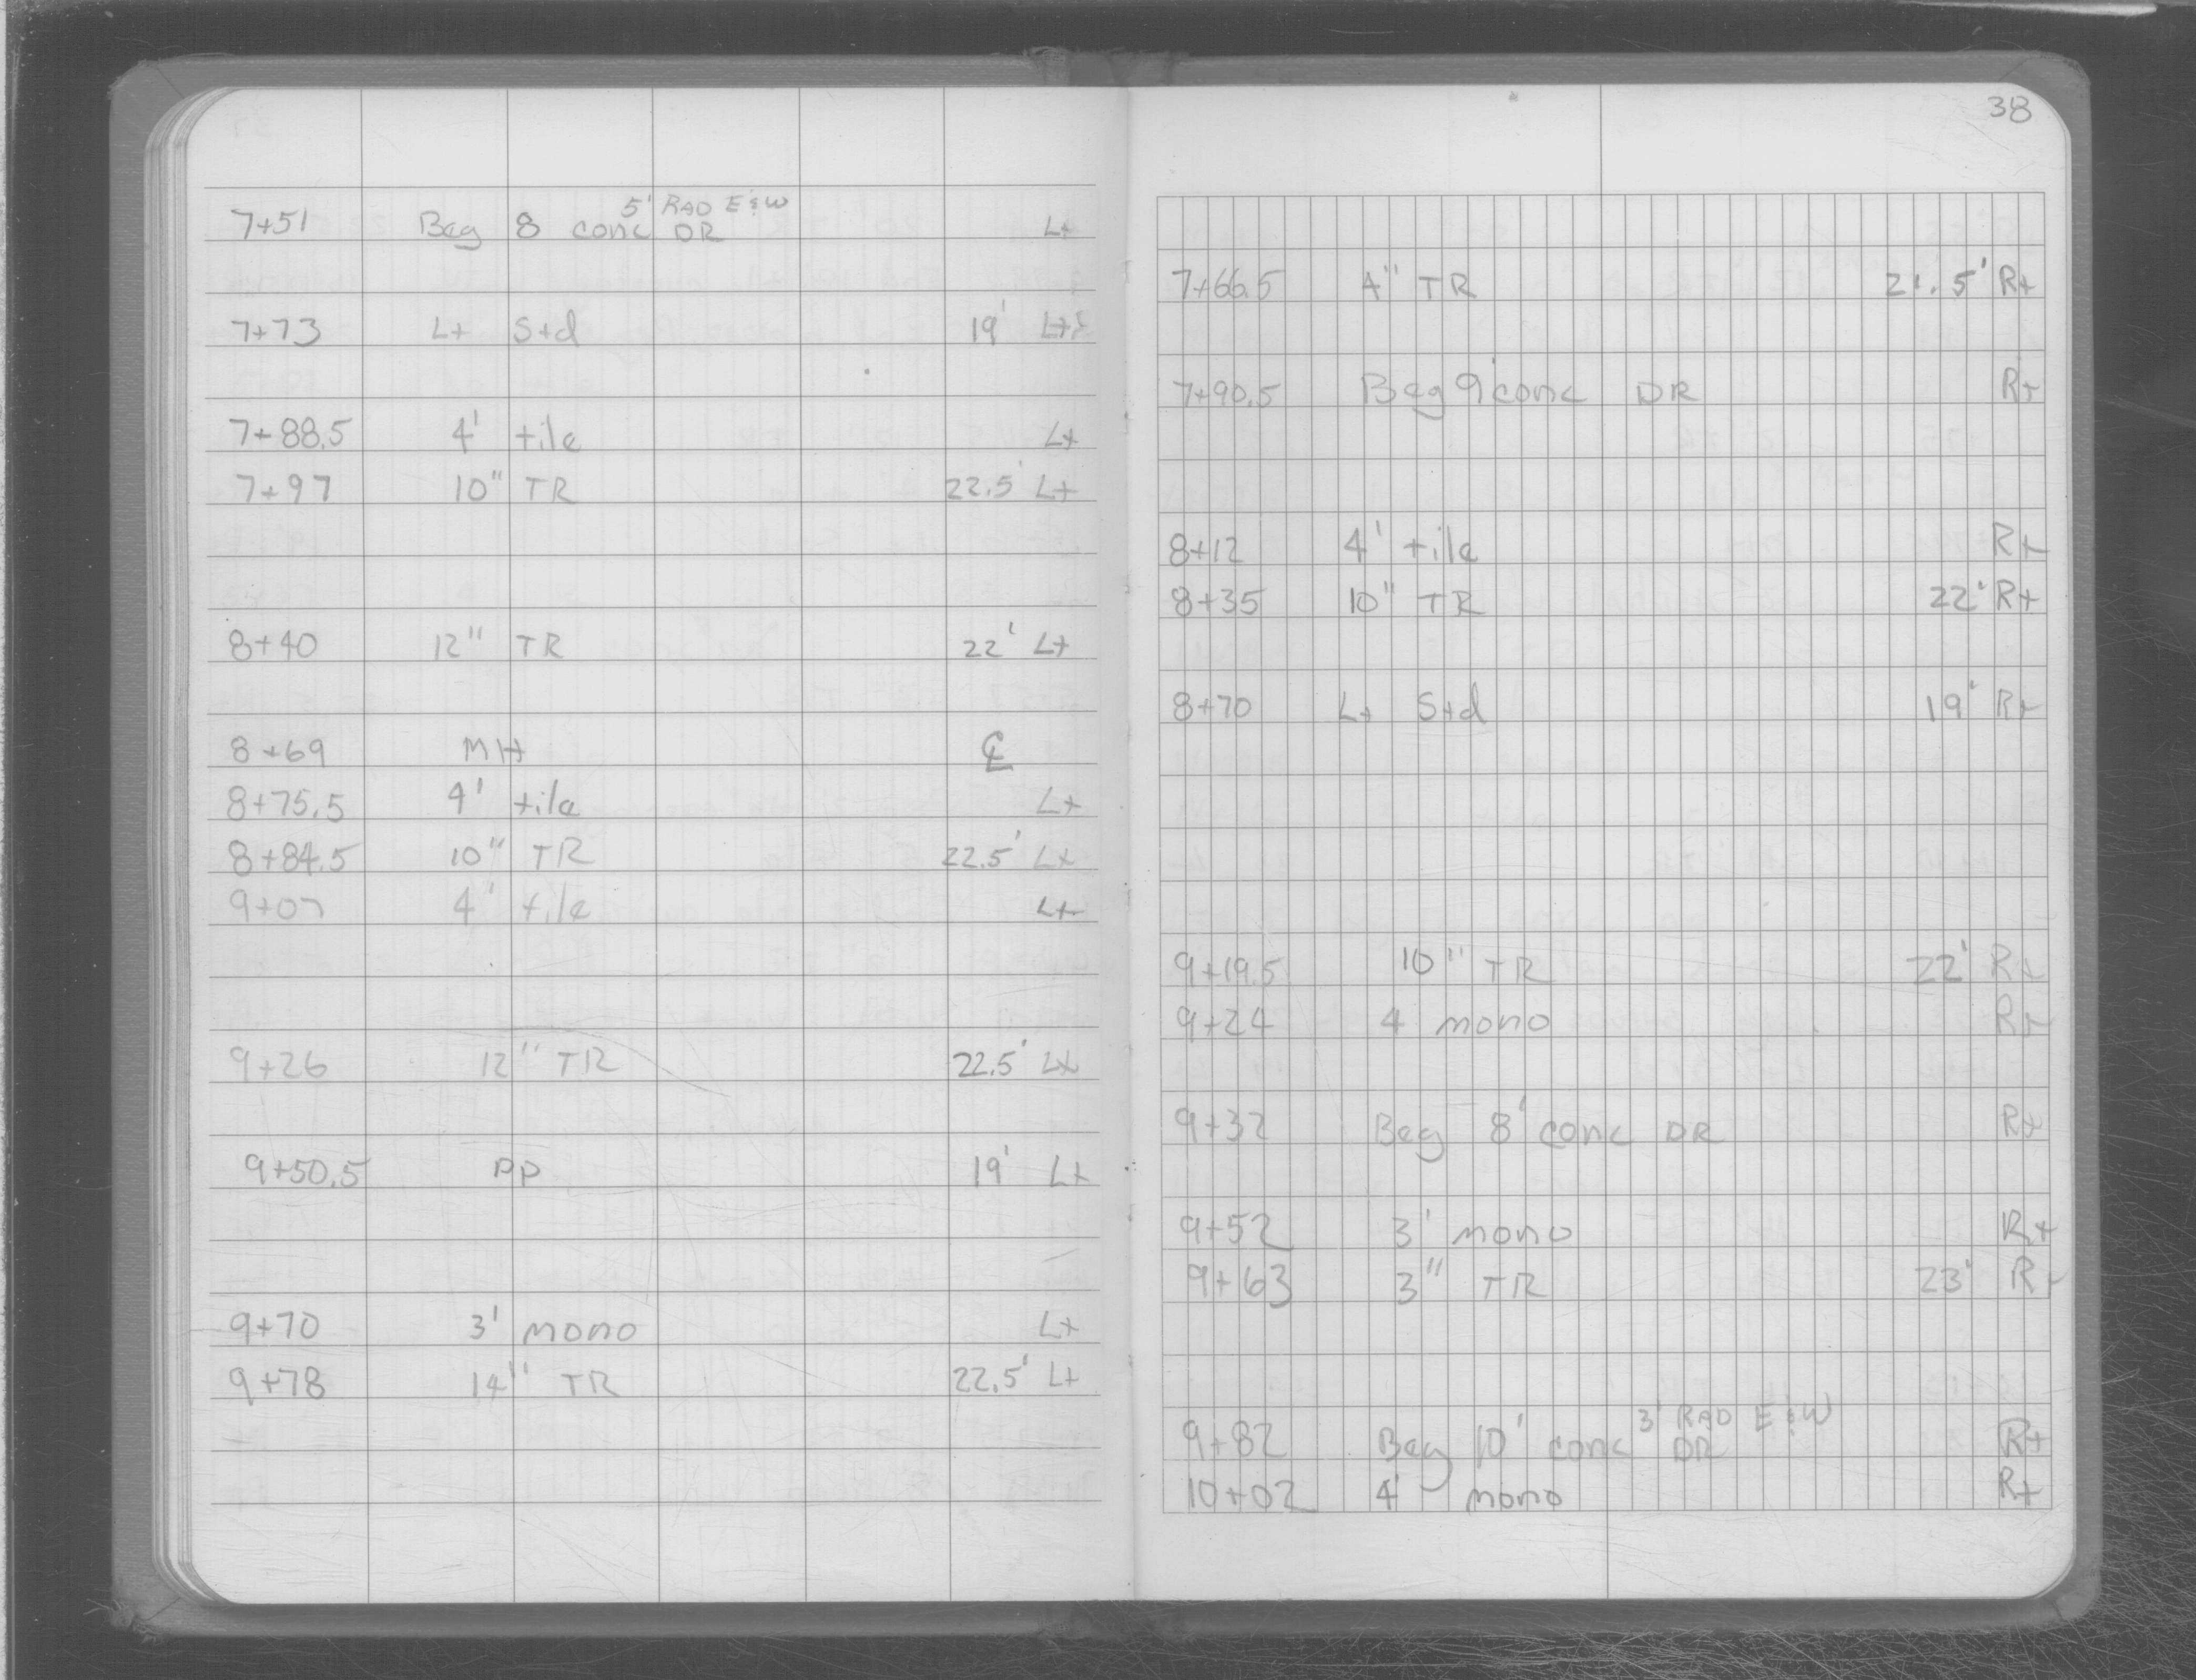 5' RAD E&W
7+51 Beg 8 conc DR Lt
7+73 Lt Std 19' Lt
7+88.5 4' tile Lt
7+97 10" TR 22.5' Lt
8+40 12" TR 22' Lt
8+69 MH ℄
8+75.5 4' tile Lt
8+84.5 10" TR 22.5' Lt
9+07 4' tile Lt
9+26 12" TR 22.5' Lt
9+50.5 PP 19' Lt
9+70 3' mono Lt
9+78 14" TR 22.5' Lt
38
7+66.5 4" TR 21.5' Rt
7+90.5 Beg 9' conc DR Rt
8+12 4' tile Rt
8+35 10" TR 22' Rt
8+70 Lt Std 19' Rt
9+19.5 10" TR 22' Rt
9+24 4 mono Rt
9+32 Beg 8' conc DR Rt
9+52 3' mono Rt
9+63 3" TR 23' Rt
3' RAD E&W
9+82 Beg 10' conc DR Rt
10+02 4' mono Rt